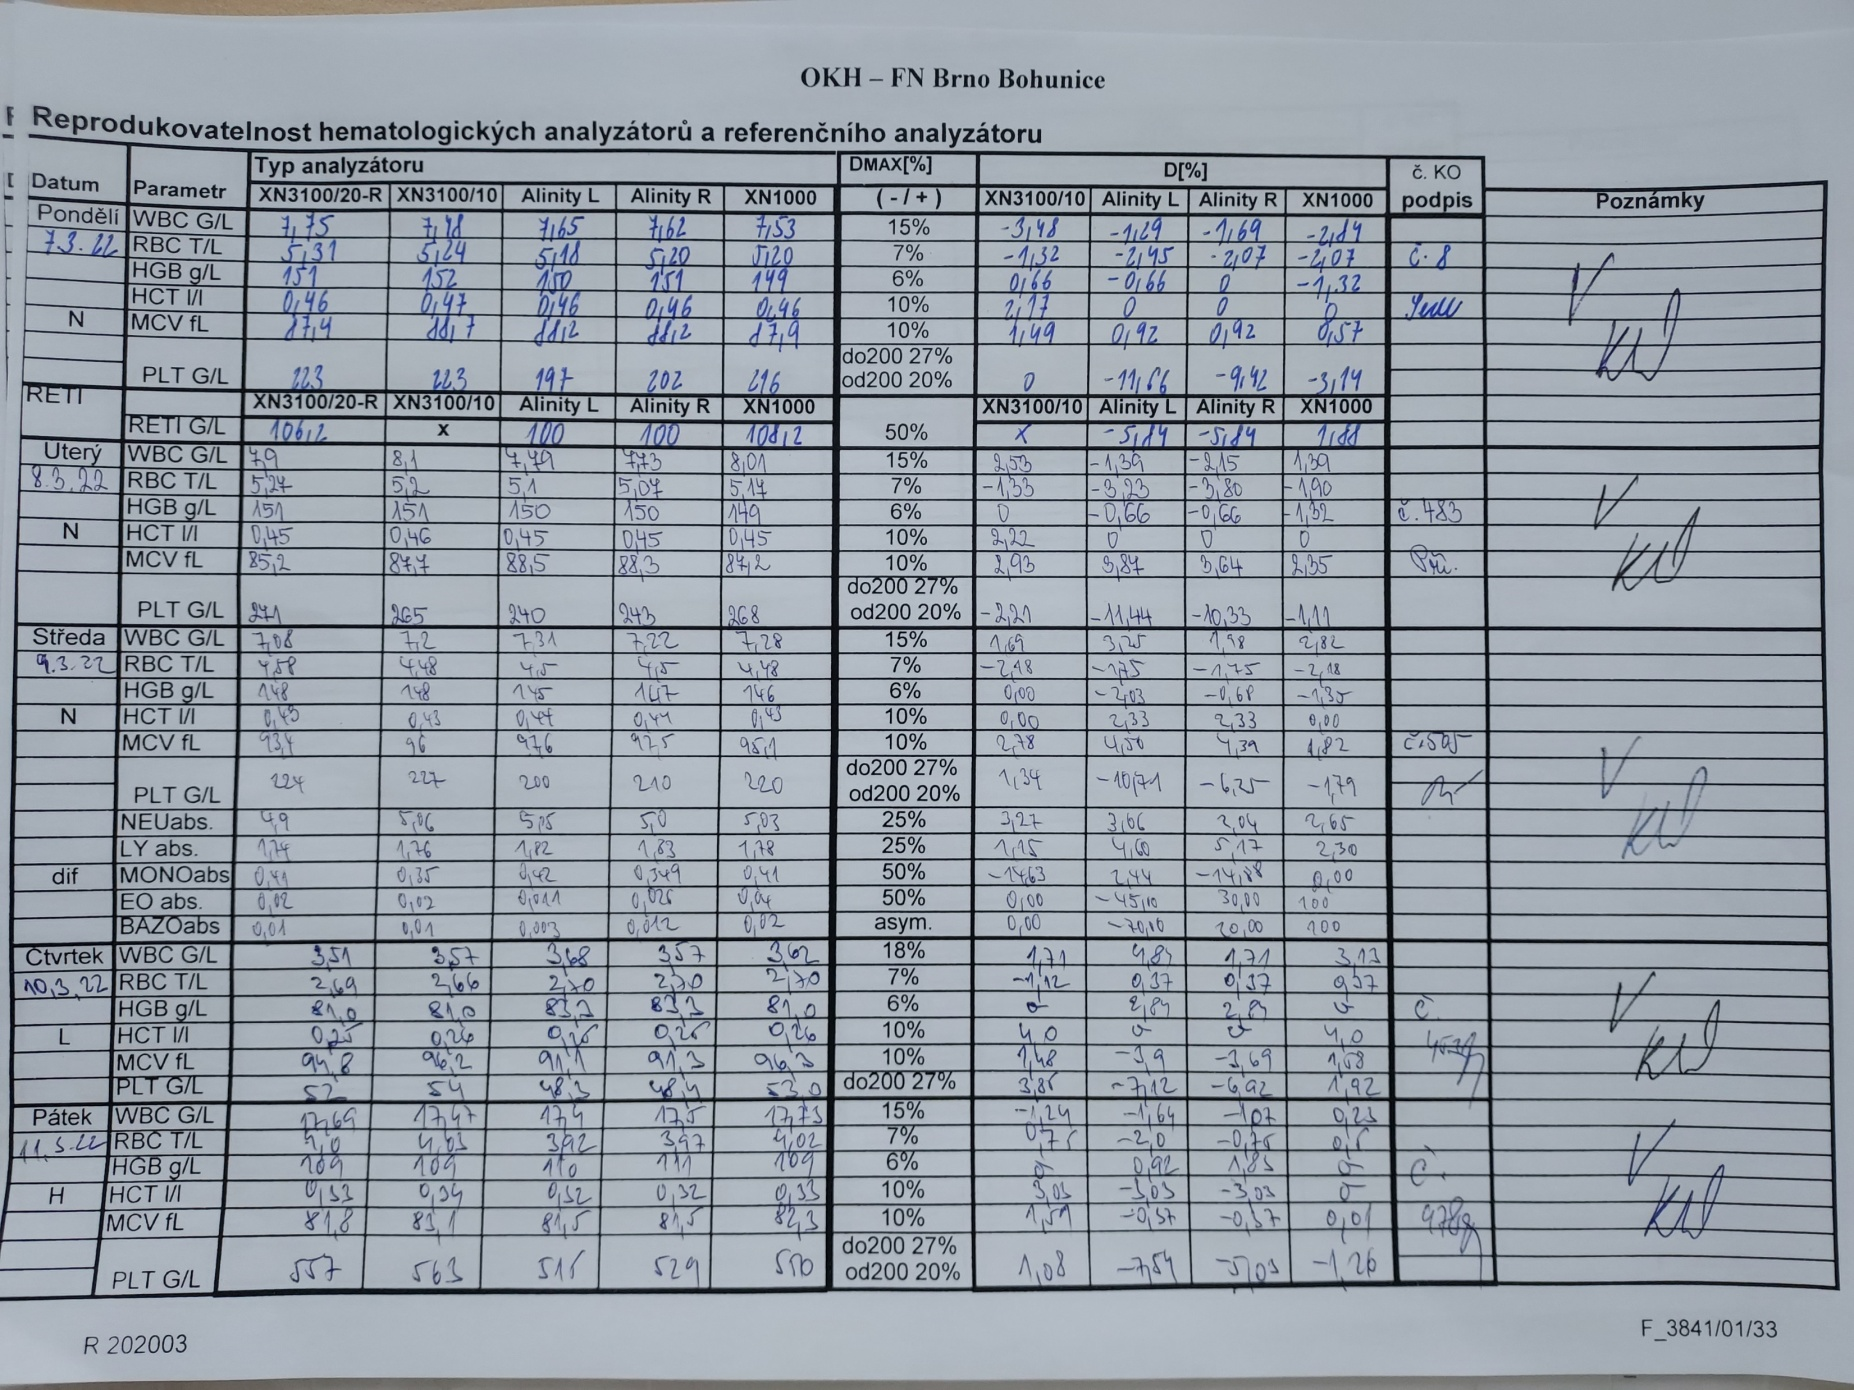 OKH – FN Brno Bohunice
Reprodukovatelnost hematologických analyzátorů a referenčního analyzátoru
Datum Parametr Typ analyzátoru DMAX[%] D[%] č. KO
XN3100/20-R XN3100/10 Alinity L Alinity R XN1000 ( - / + ) XN3100/10 Alinity L Alinity R XN1000 podpis Poznámky
Pondělí WBC G/L 7,75 7,48 7,65 7,62 7,53 15% -3,48 -1,29 -1,69 -2,84
7.3.22 RBC T/L 5,31 5,24 5,18 5,20 5,20 7% -1,32 -2,45 -2,07 -2,07 č. 8
HGB g/L 151 152 150 151 149 6% 0,66 -0,66 0 -1,32
HCT l/l 0,46 0,47 0,46 0,46 0,46 10% 2,17 0 0 0
N MCV fL 87,4 88,7 88,2 88,2 87,9 10% 1,49 0,92 0,92 0,57
do200 27%
PLT G/L 223 223 197 202 216 od200 20% 0 -11,66 -9,42 -3,14
RETI XN3100/20-R XN3100/10 Alinity L Alinity R XN1000 XN3100/10 Alinity L Alinity R XN1000
RETI G/L 106,2 x 100 100 108,2 50% x -5,84 -5,84 1,88
Úterý WBC G/L 7,9 8,1 7,79 7,73 8,01 15% 2,53 -1,39 -2,15 1,39
8.3.22 RBC T/L 5,27 5,2 5,1 5,07 5,17 7% -1,33 -3,23 -3,80 -1,90
HGB g/L 151 151 150 150 149 6% 0 -0,66 -0,66 -1,32 č. 483
N HCT l/l 0,45 0,46 0,45 0,45 0,45 10% 2,22 0 0 0
MCV fL 85,2 87,7 88,5 88,3 87,2 10% 2,93 3,87 3,64 2,35
do200 27%
PLT G/L 271 265 240 243 268 od200 20% -2,21 -11,44 -10,33 -1,11
Středa WBC G/L 7,08 7,2 7,31 7,22 7,28 15% 1,69 3,25 1,98 2,82
9.3.22 RBC T/L 4,58 4,48 4,5 4,5 4,48 7% -2,18 -1,75 -1,75 -2,18
HGB g/L 148 148 145 147 146 6% 0,00 -2,03 -0,68 -1,35
N HCT l/l 0,43 0,43 0,44 0,44 0,43 10% 0,00 2,33 2,33 0,00
MCV fL 93,4 96 97,6 97,5 95,1 10% 2,78 4,50 4,39 1,82 č. 505
do200 27%
PLT G/L 224 227 200 210 220 od200 20% 1,34 -10,71 -6,25 -1,79
NEUabs. 4,9 5,06 5,08 5,0 5,03 25% 3,27 3,66 2,04 2,65
LY abs. 1,74 1,76 1,82 1,83 1,78 25% 1,15 4,60 5,17 2,30
dif MONOabs 0,41 0,35 0,42 0,349 0,41 50% -14,63 2,44 -14,88 0,00
EO abs. 0,02 0,02 0,011 0,026 0,04 50% 0,00 -45,10 30,00 100
BAZOabs 0,01 0,01 0,003 0,012 0,02 asym. 0,00 -70,10 20,00 100
Čtvrtek WBC G/L 3,51 3,57 3,68 3,57 3,62 18% 1,71 4,84 1,71 3,13
10.3.22 RBC T/L 2,69 2,66 2,70 2,70 2,70 7% -1,12 0,37 0,37 0,37
HGB g/L 81,0 81,0 83,3 83,3 81,0 6% 0 2,84 2,84 0 č.
L HCT l/l 0,25 0,26 0,25 0,25 0,26 10% 4,0 0 0 4,0
MCV fL 94,8 96,2 91,1 91,3 96,3 10% 1,48 -3,9 -3,69 1,58
PLT G/L 52 54 48,3 48,4 53,0 do200 27% 3,85 -7,12 -6,92 1,92
Pátek WBC G/L 17,69 17,47 17,4 17,5 17,73 15% -1,24 -1,64 -1,07 0,23
11.3.22 RBC T/L 4,0 4,03 3,92 3,97 4,02 7% 0,75 -2,0 -0,75 0,5
HGB g/L 109 109 110 111 109 6% 0 0,92 1,83 0 č.
H HCT l/l 0,33 0,34 0,32 0,32 0,33 10% 3,03 -3,03 -3,03 0
MCV fL 81,8 83,1 81,5 81,5 82,3 10% 1,59 -0,37 -0,37 0,01
do200 27%
PLT G/L 557 563 515 529 550 od200 20% 1,08 -7,54 -5,03 -1,26
R 202003 F_3841/01/33